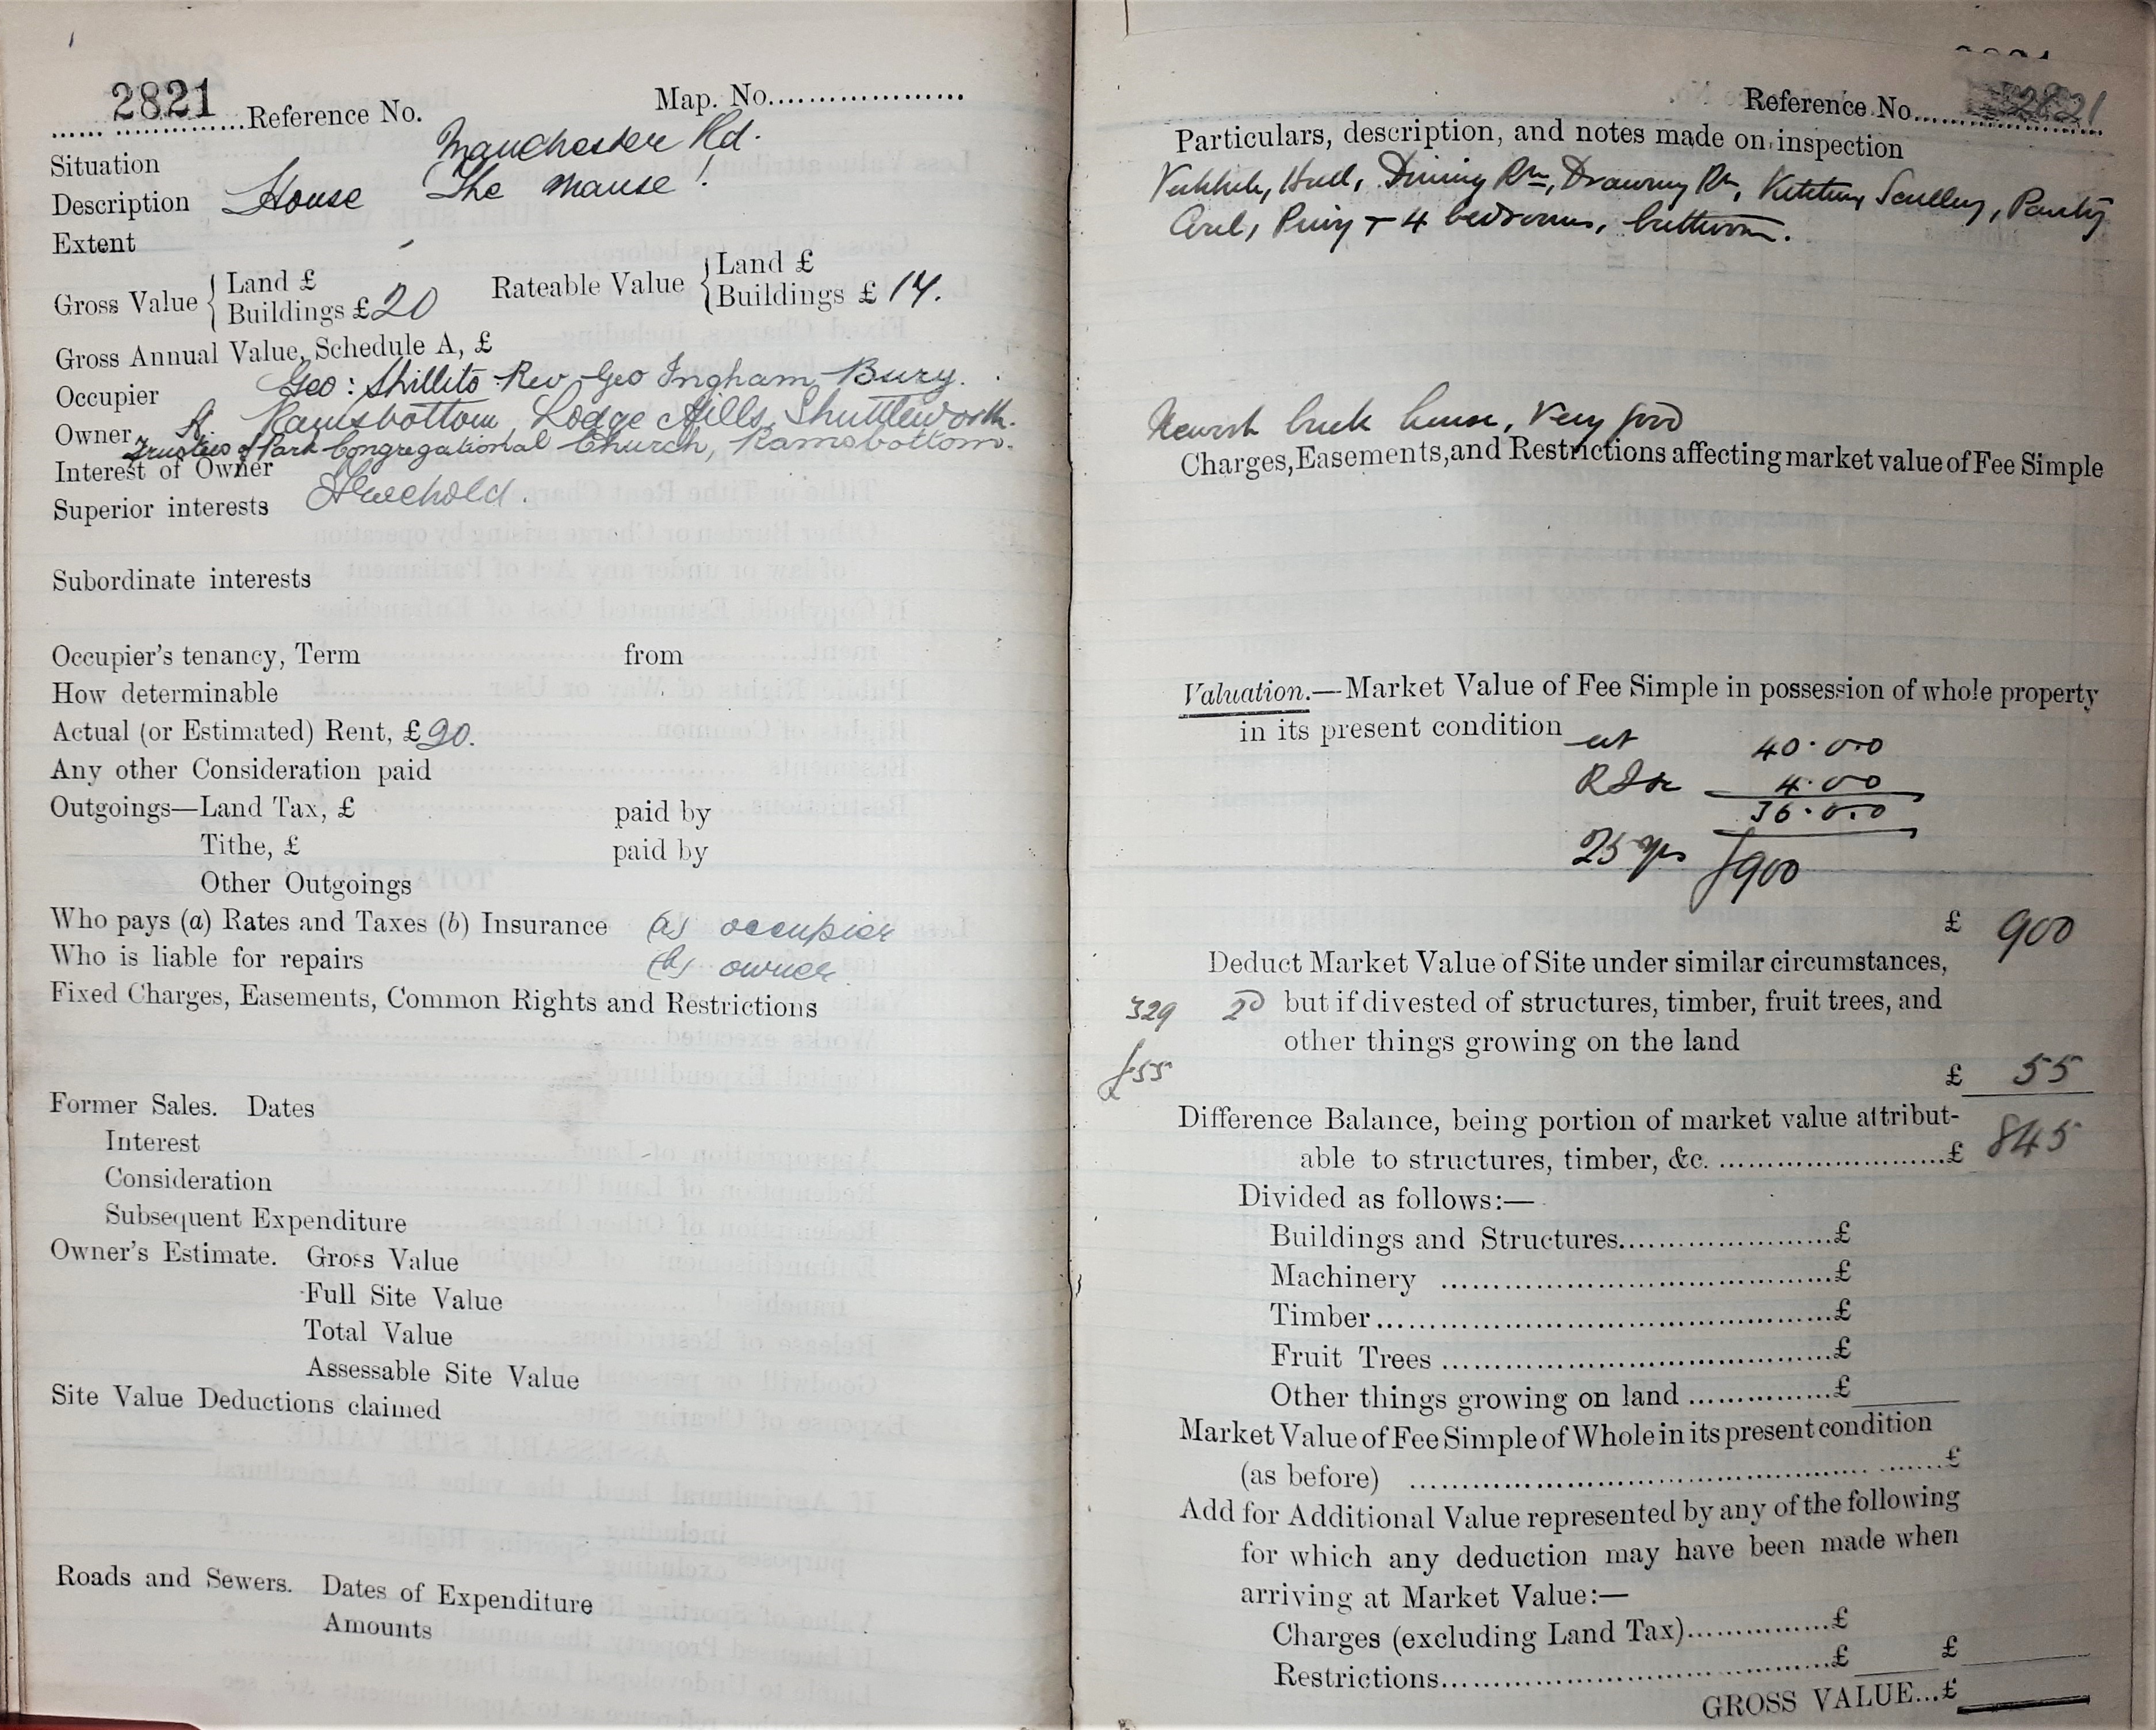 2821 Reference No. Map. No.
Situation Manchester Rd.
Description House The Manse!
Extent -
Gross Value { Land £ Rateable Value { Land £
Buildings £ 20 Buildings £ 14.
Gross Annual Value, Schedule A, £
Occupier Geo: Shillito Rev Geo Ingham Bury.
Owner A. Ramsbottom, Lodge Mills, Shuttleworth.
Trustees of Park Congregational Church, Ramsbottom.
Interest of Owner
Superior interests Freehold.
Subordinate interests
Occupier's tenancy, Term from
How determinable
Actual (or Estimated) Rent, £
Any other Consideration paid
Outgoings—Land Tax, £ paid by
Tithe, £ paid by
Other Outgoings
Who pays (a) Rates and Taxes (b) Insurance (a) occupier
Who is liable for repairs (b) owner
Fixed Charges, Easements, Common Rights and Restrictions
Former Sales. Dates
Interest
Consideration
Subsequent Expenditure
Owner's Estimate. Gross Value
Full Site Value
Total Value
Assessable Site Value
Site Value Deductions claimed
Roads and Sewers. Dates of Expenditure
Amounts
Reference No. 2821
Particulars, description, and notes made on inspection
Vestibule, Hall, Dining Rm, Drawing Rm, Kitchen, Scullery, Pantry
Coal, Privy + 4 bedrooms, bathroom.
Newish brick house, Very good
Charges, Easements, and Restrictions affecting market value of Fee Simple
Valuation.—Market Value of Fee Simple in possession of whole property
in its present condition at 40.0.0
4.00
36.0.0
25 yrs £900
£ 900
Deduct Market Value of Site under similar circumstances,
329 20 but if divested of structures, timber, fruit trees, and
other things growing on the land
£55 £ 55
Difference Balance, being portion of market value attribut-
able to structures, timber, &c. £ 845
Divided as follows:—
Buildings and Structures £
Machinery £
Timber £
Fruit Trees £
Other things growing on land £
Market Value of Fee Simple of Whole in its present condition
(as before) £
Add for Additional Value represented by any of the following
for which any deduction may have been made when
arriving at Market Value:—
Charges (excluding Land Tax) £
Restrictions £ £
GROSS VALUE...£